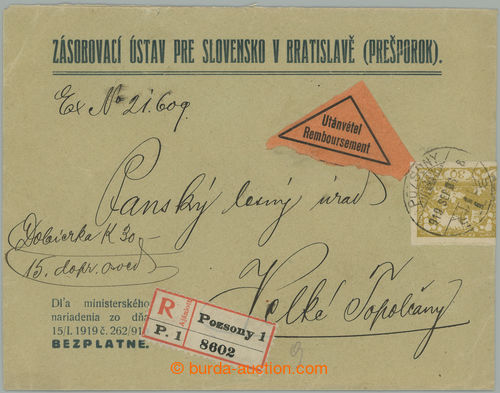 ZÁSOBOVACÍ ÚSTAV PRE SLOVENSKO V BRATISLAVĚ (PREŠPOROK).
Ex No 21.609.
Utánvétel
Remboursement
POZSONY
Panský lesný úrad
Dobierka K 30.–
15. dopr. oved
Velké Topolčány
Dľa ministerského
nariadenia zo dňa
15/I. 1919 č. 262/91
BEZPLATNE.
R
Ajánlott
P. 1
Pozsony 1
8602
© burda-auction.com